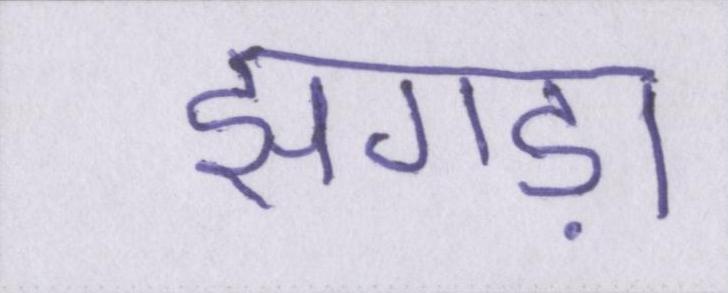 झगड़ा